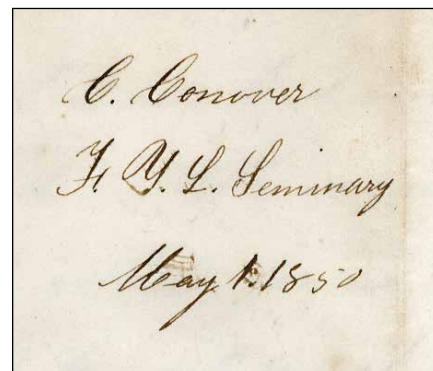 C. Conover
F. Y. L. Seminary
May 1. 1850